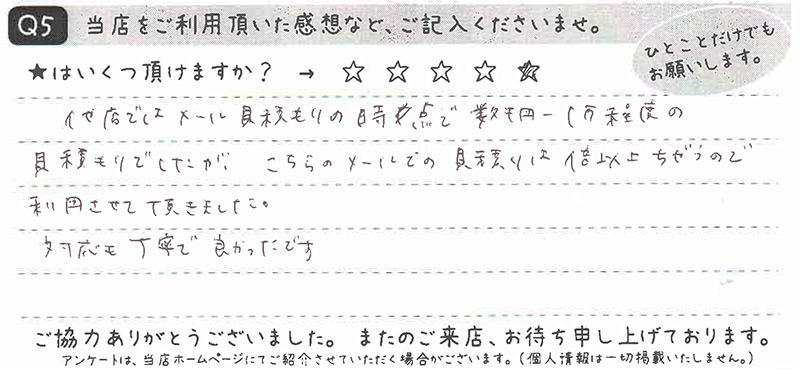 Q5 当店をご利用頂いた感想など、ご記入くださいませ。
ひとことだけでも
お願いします。
★はいくつ頂けますか? → ☆ ☆ ☆ ☆ ★
他店ではメール見積もりの時点で数千円〜1万程度の
見積もりでしたが、こちらのメールでの見積りは倍以上ちがうので
利用させて頂きました。
対応も丁寧で良かったです
ご協力ありがとうございました。 またのご来店、お待ち申し上げております。
アンケートは、当店ホームページにてご紹介させていただく場合がございます。(個人情報は一切掲載いたしません。)